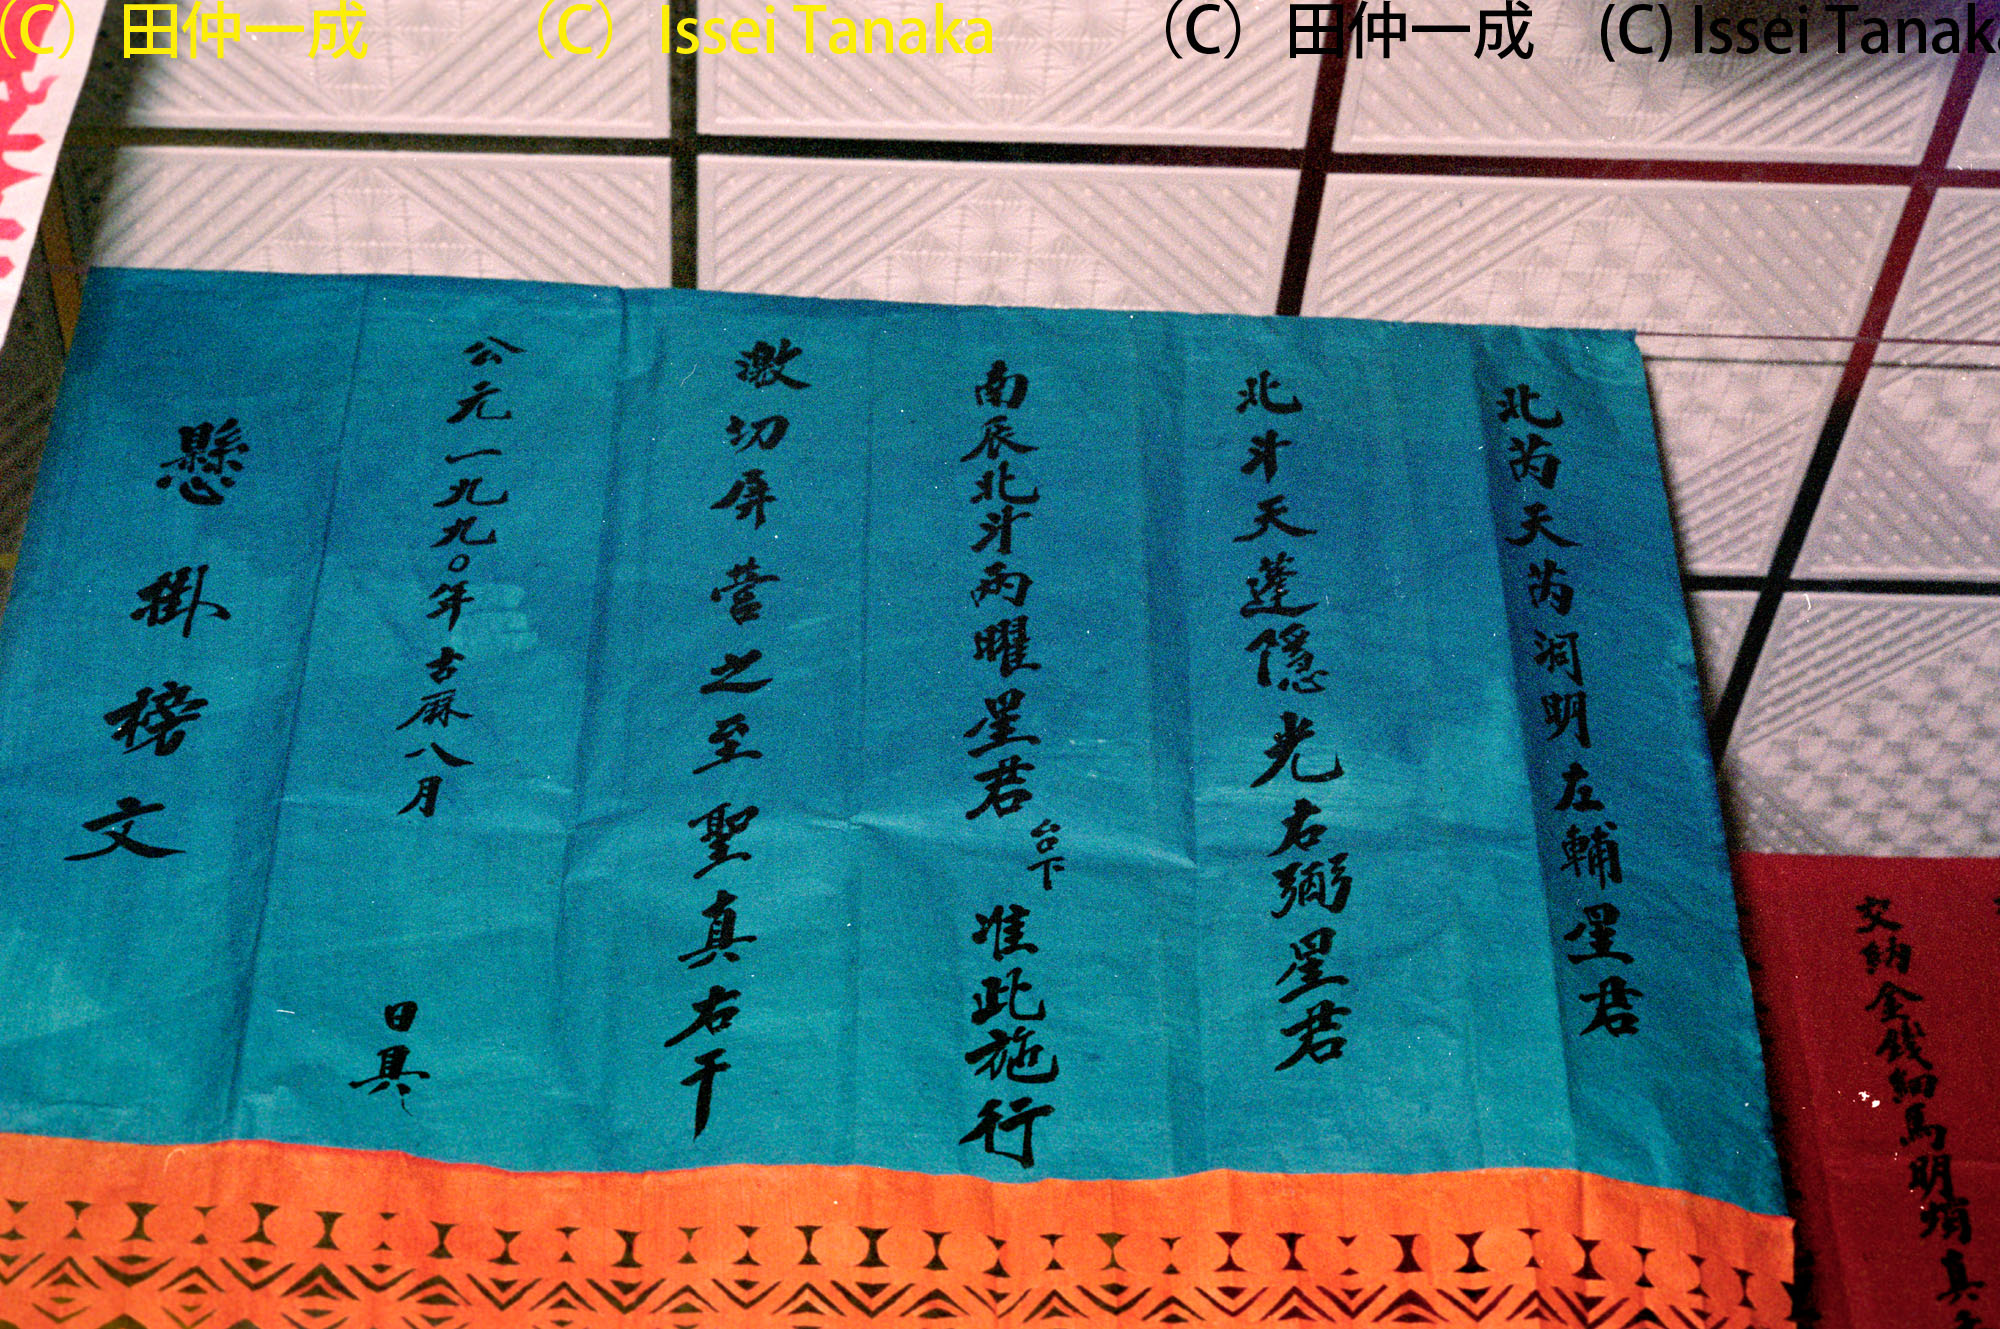 （C） 田仲一成 （C） Issei Tanaka （C） 田仲一成 (C) Issei Tanaka
北芮天芮洞明左輔星君
北斗天蓬隱光右弼星君
南辰北斗兩曜星君 台下 准此施行
激切屏营之至聖真右干
公元一九九〇年古厤八月 日具
懸掛榜文
交納金錢細馬明
真